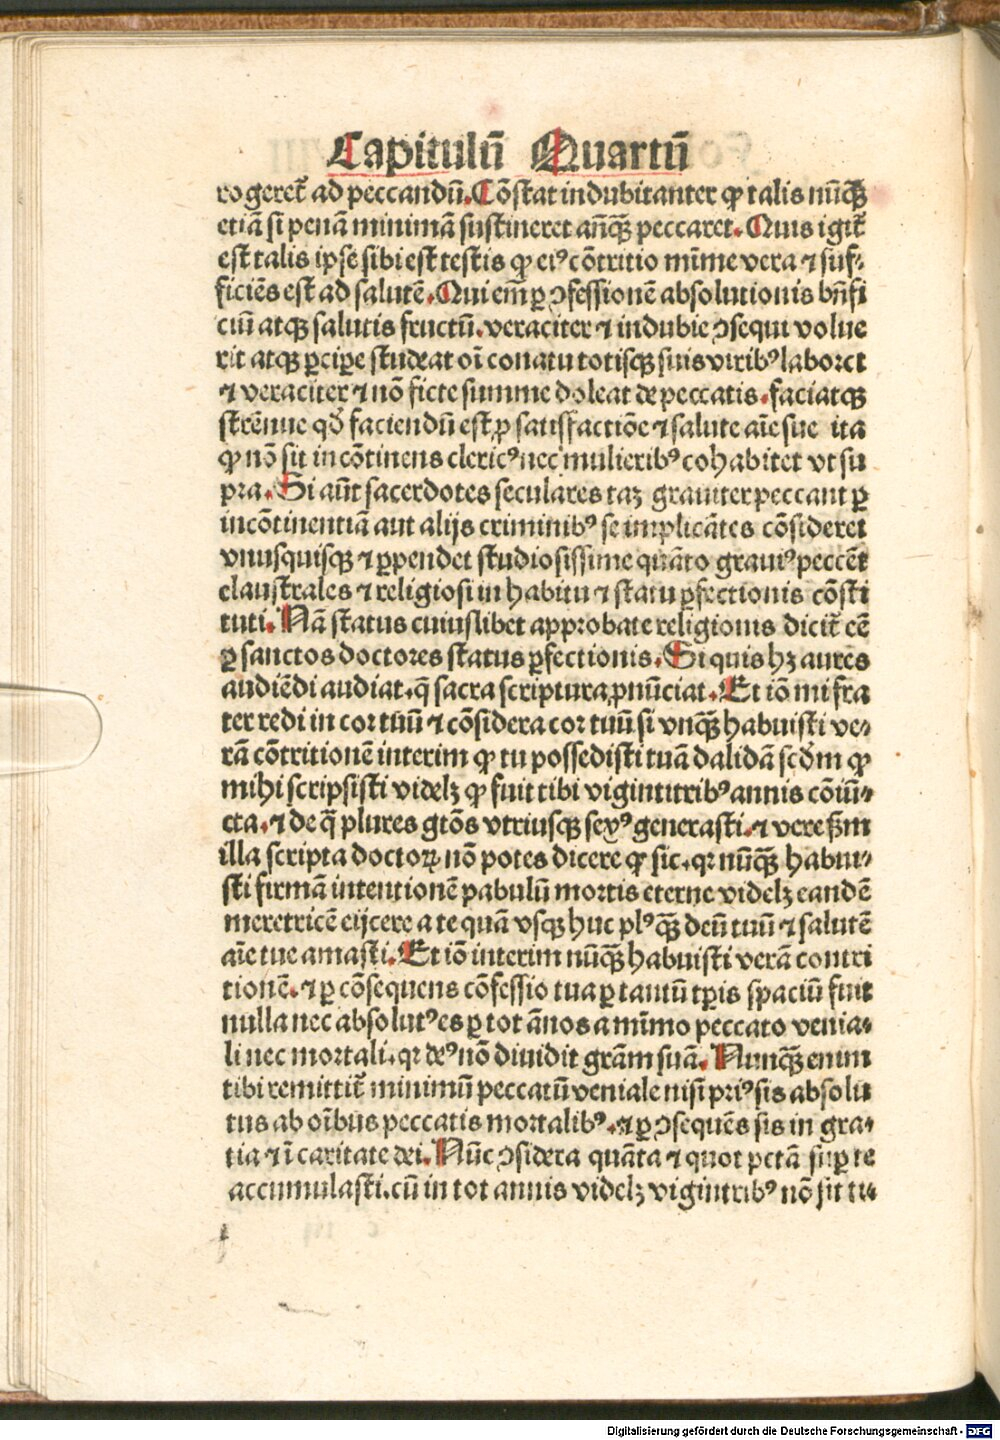 Capitulū Quartū
ro gereꝛ̄ ad peccandū. Cōstat indubitanter ꝙ talis nūqꝫ
etiā si penā minimā sustineret anqꝫ̄ peccaret. Quis igiꝛ̄
est talis ipse sibi est testis ꝙ eiꝰ cōtritio mīme vera ⁊ suf⸗
ficiēs est ad salutē. Qui em̄ ꝑ ↄfessionē absolutionis bn̄fi
ciū atqꝫ salutis fructū. veraciter ⁊ indubie ↄsequi volue
rit atqꝫ ꝑciꝑe studeat oī conatu totisqꝫ suis viribꝰ laboret
⁊ veraciter ⁊ nō ficte summe doleat de peccatis. faciatqꝫ
strēnue qđ faciendū est ꝓ satisfactiōe ⁊ salute aīe sue ita
ꝙ nō sit incōtinens clericꝰ nec mulieribꝰ cohabitet vt su
pra. Si aūt sacerdotes seculares taꝫ grauiter peccant ꝑ
incōtinentiā aut alijs criminibꝰ se implicātes cōsideret
vnusquisqꝫ ⁊ ꝑpendet studiosissime quāto grauiꝰ peccēt
claustrales ⁊ religiosi in habitu ⁊ statu ꝑfectionis cōsti
tuti. Nā status cuiuslibet approbate religionis diciꝛ̄ eē
ꝑ sanctos doctores status ꝑfectionis. Si quis hꝫ aures
audiēdi audiat. q̄ sacra scriptura ꝓnūciat. Et iō mi fra
ter redi in cor tuū ⁊ cōsidera cor tuū si vnqꝫ̄ habuisti ve⸗
rā cōtritionē interim ꝙ tu possedisti tuā dalidā scđm ꝙ
mihi scripsisti videlꝫ ꝙ fuit tibi vigintitribꝰ annis cōiū⸗
cta. ⁊ de q̄ plures gtōs vtriusqꝫ sexꝰ generasti. ⁊ vere ẜm
illa scripta doctoꝝ nō potes dicere ꝙ sic. qꝛ nūqꝫ̄ habui⸗
sti firmā intentionē pabulū mortis eterne videlꝫ eandē
meretricē eijcere a te quā vsqꝫ huc plꝰ qꝫ̄ deū tuū ⁊ salutē
aīe tue amasti. Et iō interim nūqꝫ̄ habuisti verā contri
tionē. ⁊ ꝑ cōsequens cōfessio tua ꝑ tantū tꝑis spaciū fuit
nulla nec absolutꝰ es ꝑ tot ānos a mīmo peccato venia⸗
li nec mortali. qꝛ deꝰ nō diuidit grām suā. Nunqꝫ̄ enim
tibi remittiꝛ̄ minimū peccatū veniale nisi priꝰ sis absolu
tus ab oībus peccatis mortalibꝰ. ⁊ ꝑ ↄsequēs sis in gra⸗
tia ⁊ ī caritate dei. Nūc ↄsidera quāta ⁊ quot pctā suꝑ te
accumulasti. cū in tot annis videlꝫ vigintribꝰ nō sit tu⸗
Digitalisierung gefördert durch die Deutsche Forschungsgemeinschaft - DFG